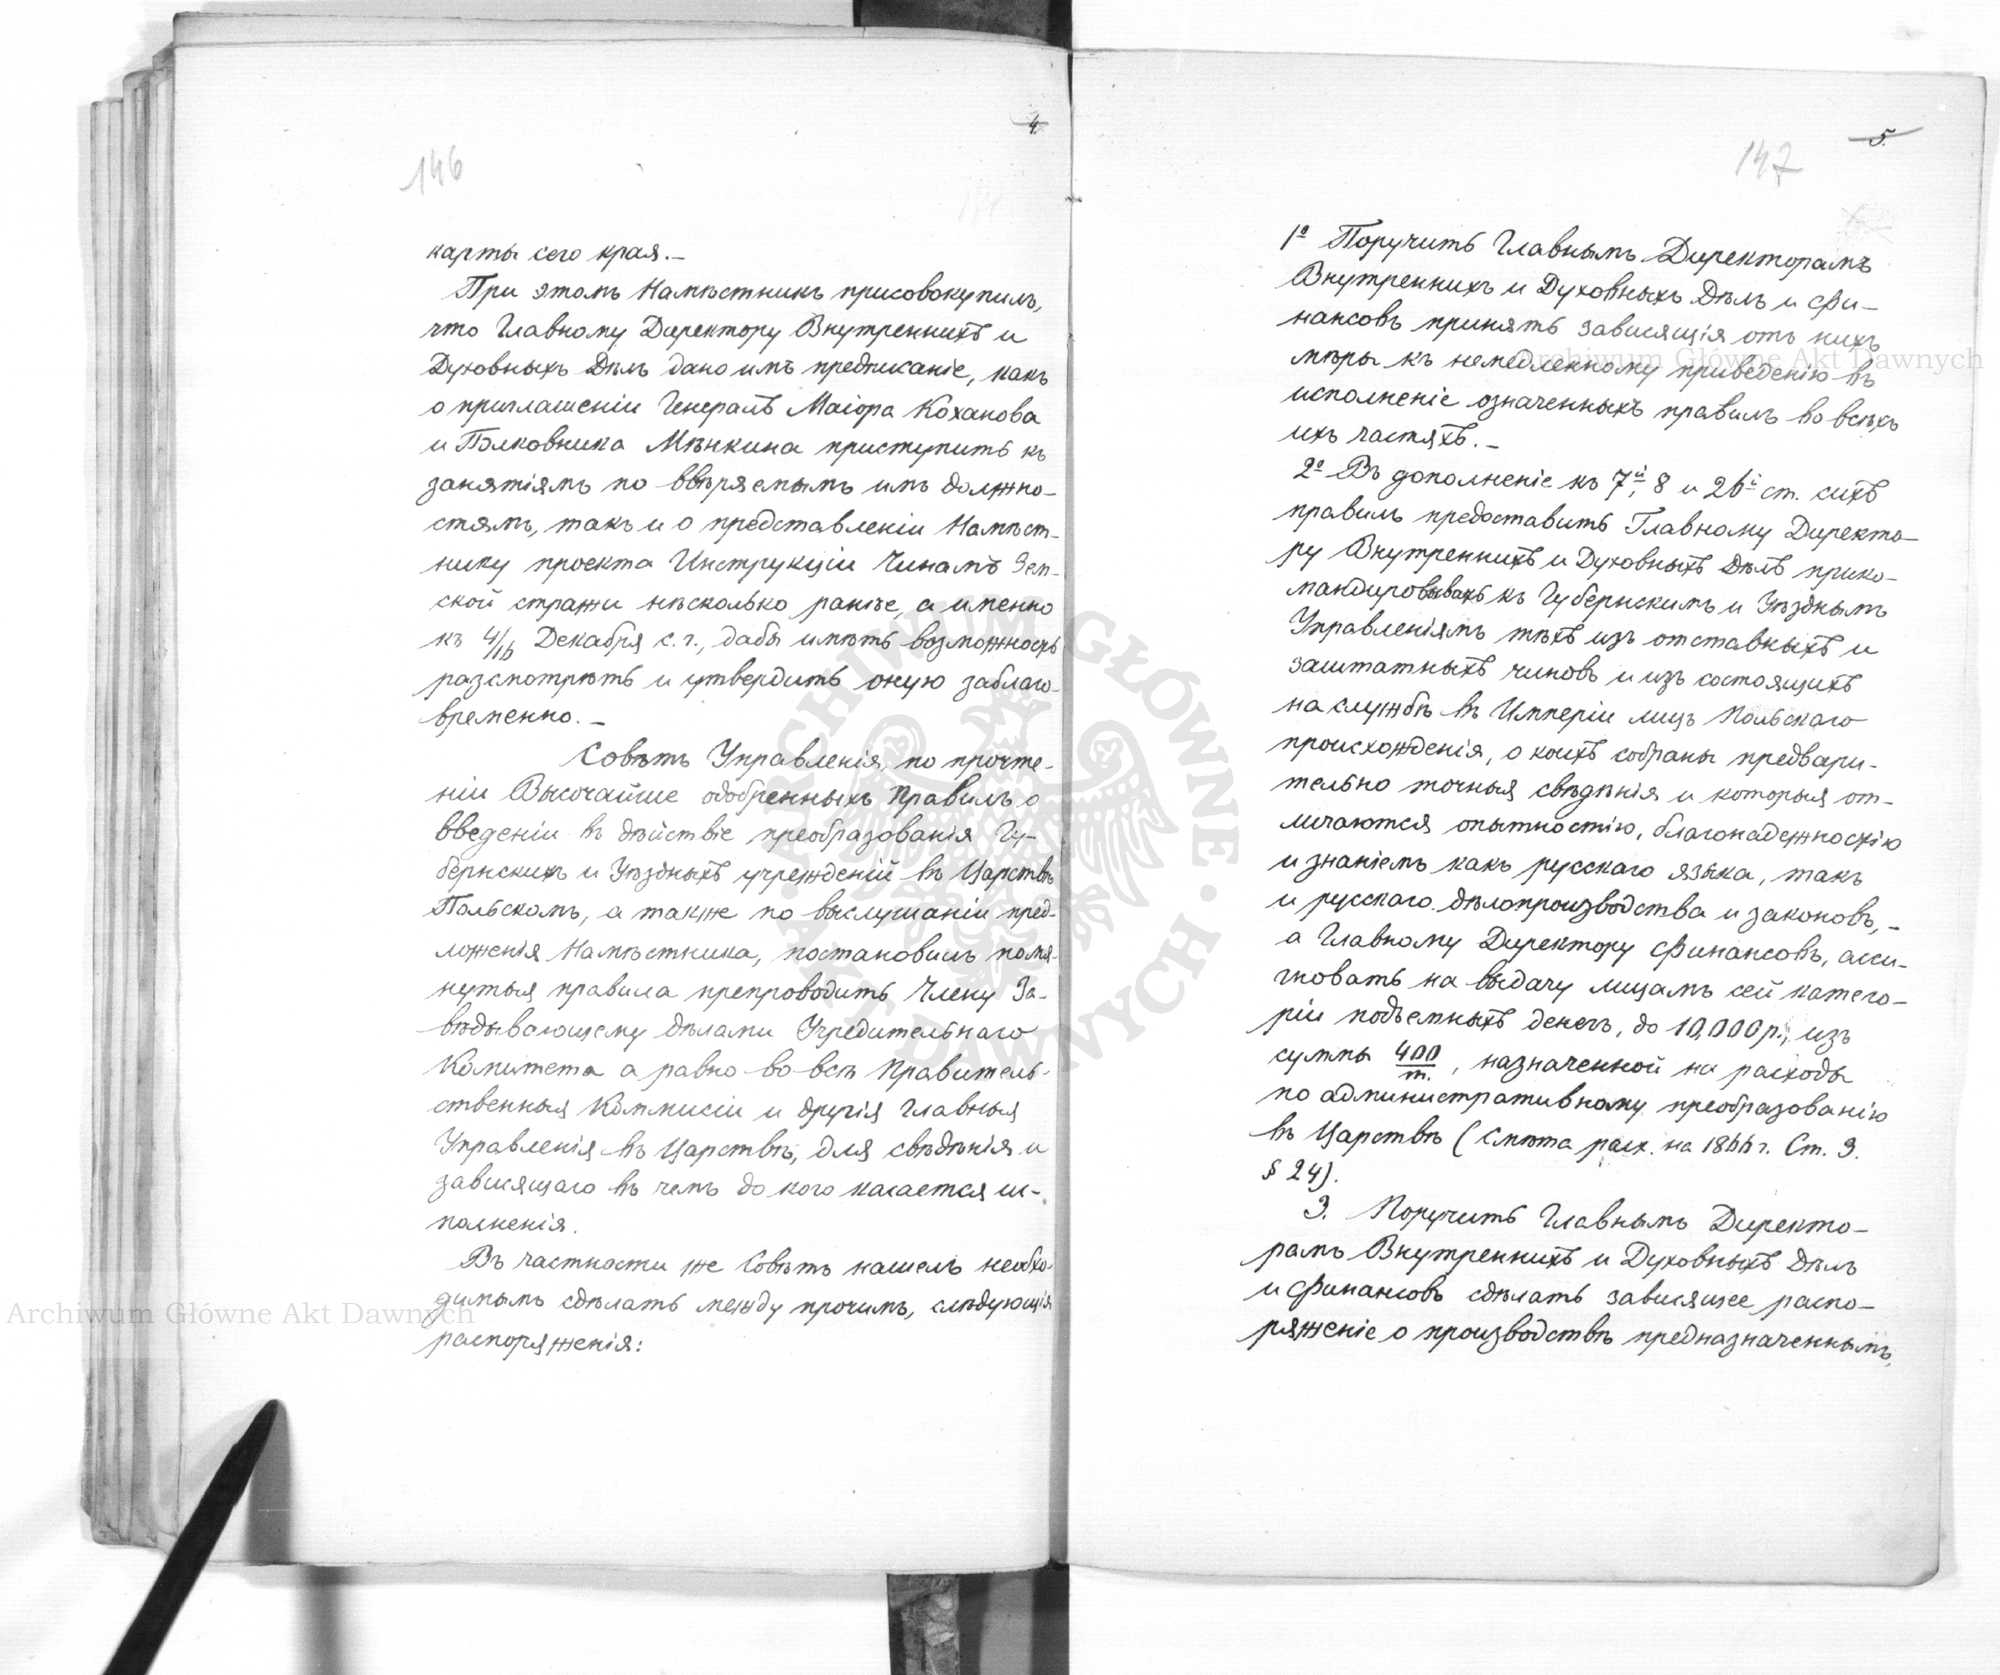 4.
146
карты сего края.—
При этомъ Намѣстникъ присовокупилъ,
что Главному Директору Внутреннихъ и
Духовныхъ Дѣлъ дано имъ предписаніе, какъ
о приглашеніи Генералъ Маіора Коханова
и Полковника Мѣнкина приступить къ
занятіямъ по ввѣряемымъ имъ должно-
стямъ, такъ и о представленіи Намѣст-
нику проекта Инструкціи Чинамъ Зем-
ской стражи нѣсколько ранѣе, а именно
къ 4/16 Декабря с. г., дабы имѣть возможность
разсмотрѣть и утвердить оную заблаго-
временно.—
Совѣтъ Управленія, по прочте-
ніи Высочайше одобренныхъ Правилъ о
введеніи въ дѣйствіе преобразованія Гу-
бернскихъ и Уѣздныхъ учрежденій въ Царствѣ
Польскомъ, а также по выслушаніи пред-
ложенія Намѣстника, постановилъ помя-
нутыя правила препроводить Члену За-
вѣдывающему дѣлами Учредительнаго
Комитета а равно во всѣ Правитель-
ственныя Коммисіи и другія Главныя
Управленія въ Царствѣ, для свѣдѣнія и
зависящаго въ чемъ до кого касается ис-
полненія.
Въ частности же Совѣтъ нашелъ необхо-
димымъ сдѣлать между прочимъ, слѣдующія
распоряженія:
5.
147
1º Поручить Главнымъ Директорамъ
Внутреннихъ и Духовныхъ Дѣлъ и Фи-
нансовъ принять зависящія отъ нихъ
мѣры къ немедленному приведенію въ
исполненіе означенныхъ правилъ во всѣхъ
ихъ частяхъ.—
2º Въ дополненіе къ 7й, 8 и 26й ст. сихъ
правилъ предоставить Главному Директо-
ру Внутреннихъ и Духовныхъ Дѣлъ прико-
мандировывать къ Губернскимъ и Уѣзднымъ
Управленіямъ тѣхъ изъ отставныхъ и
заштатныхъ чиновъ и изъ состоящихъ
на службѣ въ Имперіи лицъ Польскаго
происхожденія, о коихъ собраны предвари-
тельно точныя свѣдѣнія и которыя от-
личаются опытностію, благонадежностію
и знаніемъ какъ русскаго языка, такъ
и русскаго дѣлопроизводства и законовъ,—
а Главному Директору Финансовъ, асси-
гновать на выдачу лицамъ сей катего-
ріи подъемныхъ денегъ, до 10,000 р., изъ
суммы 400/т., назначенной на расходы
по административному преобразованію
въ Царствѣ (Смѣта расх. на 1866 г. Ст. 3.
§ 24).
3. Поручить Главнымъ Директо-
рамъ Внутреннихъ и Духовныхъ Дѣлъ
и Финансовъ сдѣлать зависящее распо-
ряженіе о производствѣ предназначеннымъ,
Archiwum Główne Akt Dawnych
Archiwum Główne Akt Dawnych
ARCHIWUM GŁÓWNE AKT DAWNYCH